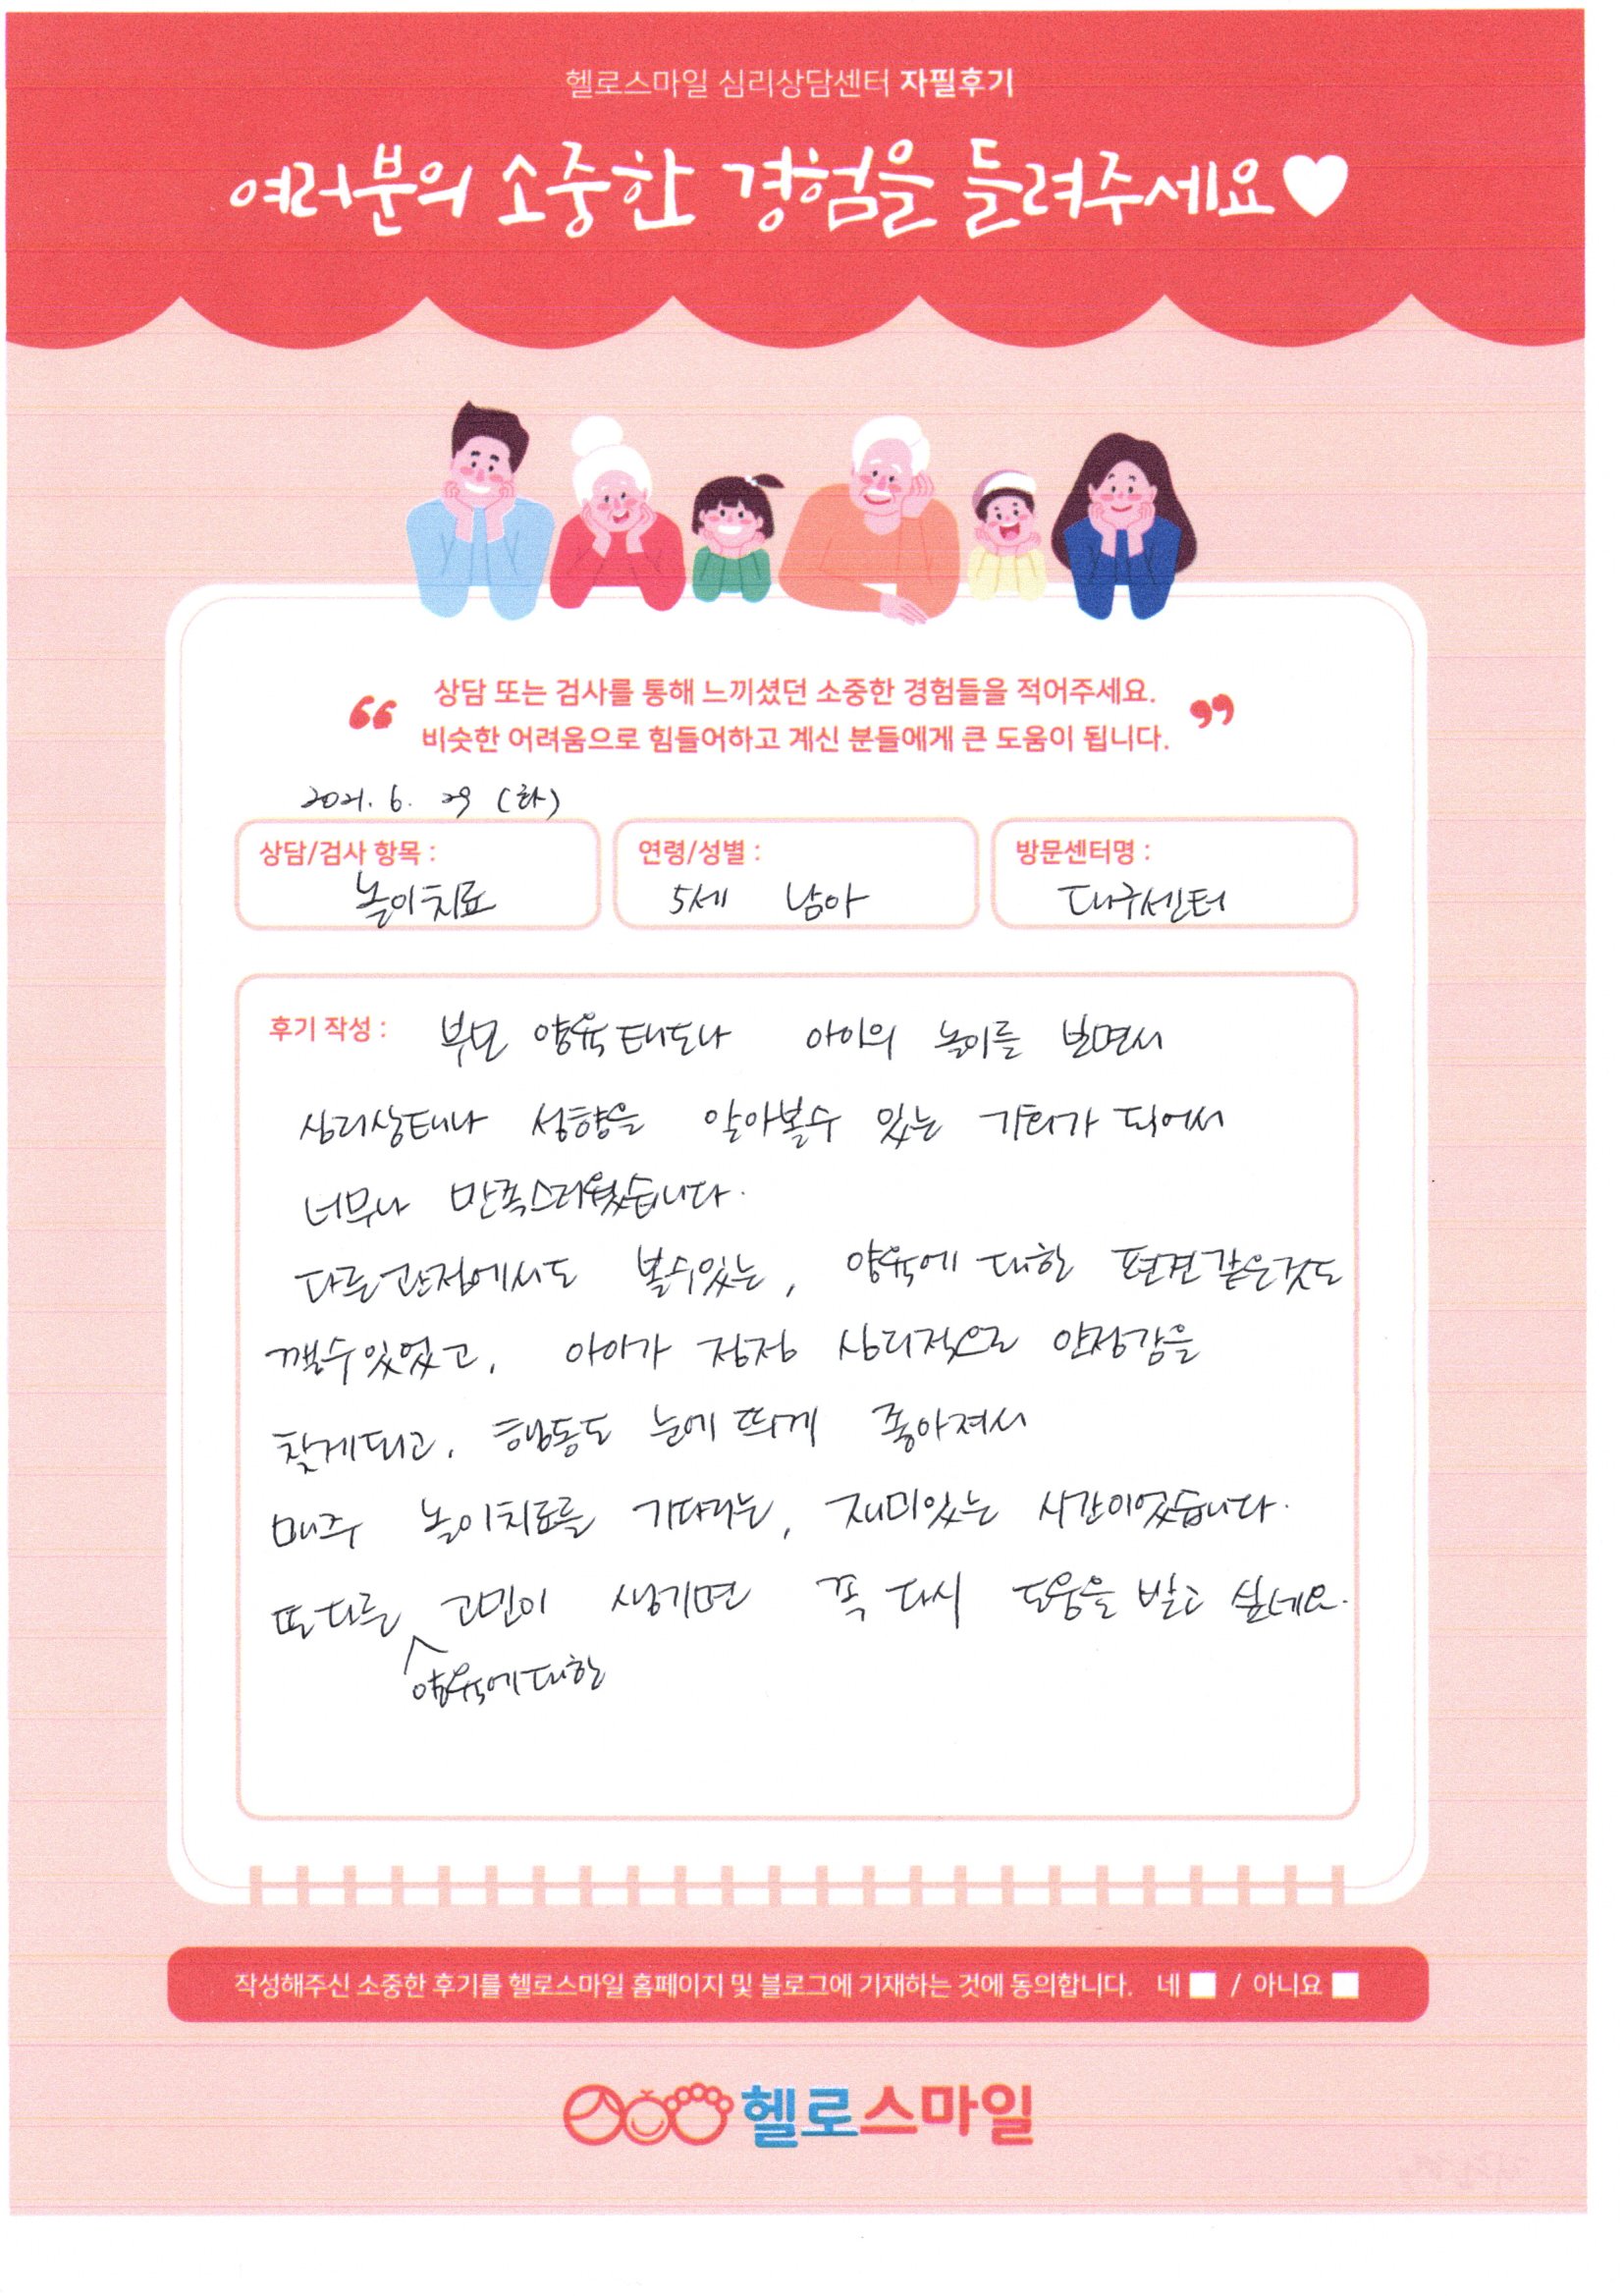 헬로스마일 심리상담센터 자필후기
여러분의 소중한 경험을 들려주세요♥
“ 상담 또는 검사를 통해 느끼셨던 소중한 경험들을 적어주세요. ”
비슷한 어려움으로 힘들어하고 계신 분들에게 큰 도움이 됩니다.
2021. 6. 29 (화)
상담/검사 항목 : 놀이치료
연령/성별 : 5세 남아
방문센터명 : 대구센터
후기 작성 : 부모 양육태도나 아이의 놀이를 보면서
심리상태나 성향을 알아볼수 있는 기회가 되어서
너무나 만족스러웠습니다.
다른관점에서도 볼수있는, 양육에 대한 편견같은것도
깰수있었고, 아이가 점점 심리적으로 안정감을
찾게되고, 행동도 눈에 띄게 좋아져서
매주 놀이치료를 기다리는, 재미있는 시간이었습니다.
또다른 고민이 생기면 꼭 다시 도움을 받고 싶네요.
양육에대한
작성해주신 소중한 후기를 헬로스마일 홈페이지 및 블로그에 기재하는 것에 동의합니다. 네 / 아니요
헬로스마일